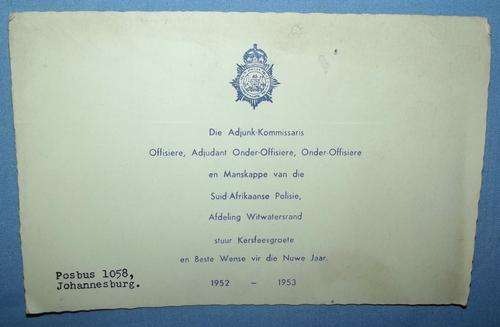 Die Adjunk-Kommissaris
Offisiere, Adjudant Onder-Offisiere, Onder-Offisiere
en Manskappe van die
Suid-Afrikaanse Polisie,
Afdeling Witwatersrand
stuur Kersfeesgroete
en Beste Wense vir die Nuwe Jaar.
Posbus 1058,
Johannesburg.
1952 – 1953